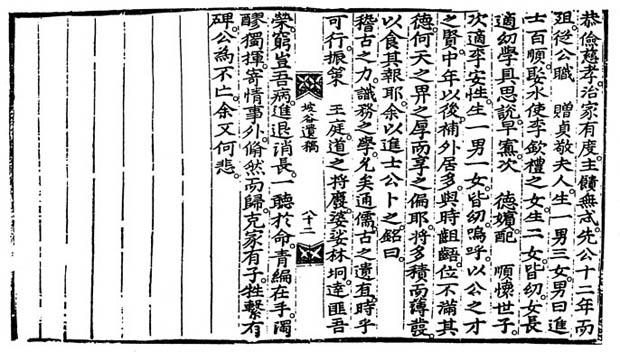 恭儉慈孝治家有度主饋無忒先公十二年而
殂從公職 贈貞敬夫人生一男三女男曰進
士百順娶水使李欽禮之女生二女皆幼女長
適幼學具思說早寡次 德嬪配 順懷世子
次適李安性生一男一女皆幼嗚呼以公之才
之賢中年以後補外居多與時齟齬位不滿其
德何天之畀之厚而享之偏耶將多積而薄發
以食其報耶余以進士公卜之銘曰
稽古之力識務之學允矣通儒古之遺直時乎
可行振策 王庭道之將廢婆娑林坰達匪吾
坡谷遺稿 八十二
榮窮豈吾病進退消長一聽於命青編在手濁
醪獨揮寄情事外翛然而歸克家有子牲繫有
碑公為不亡余又何悲